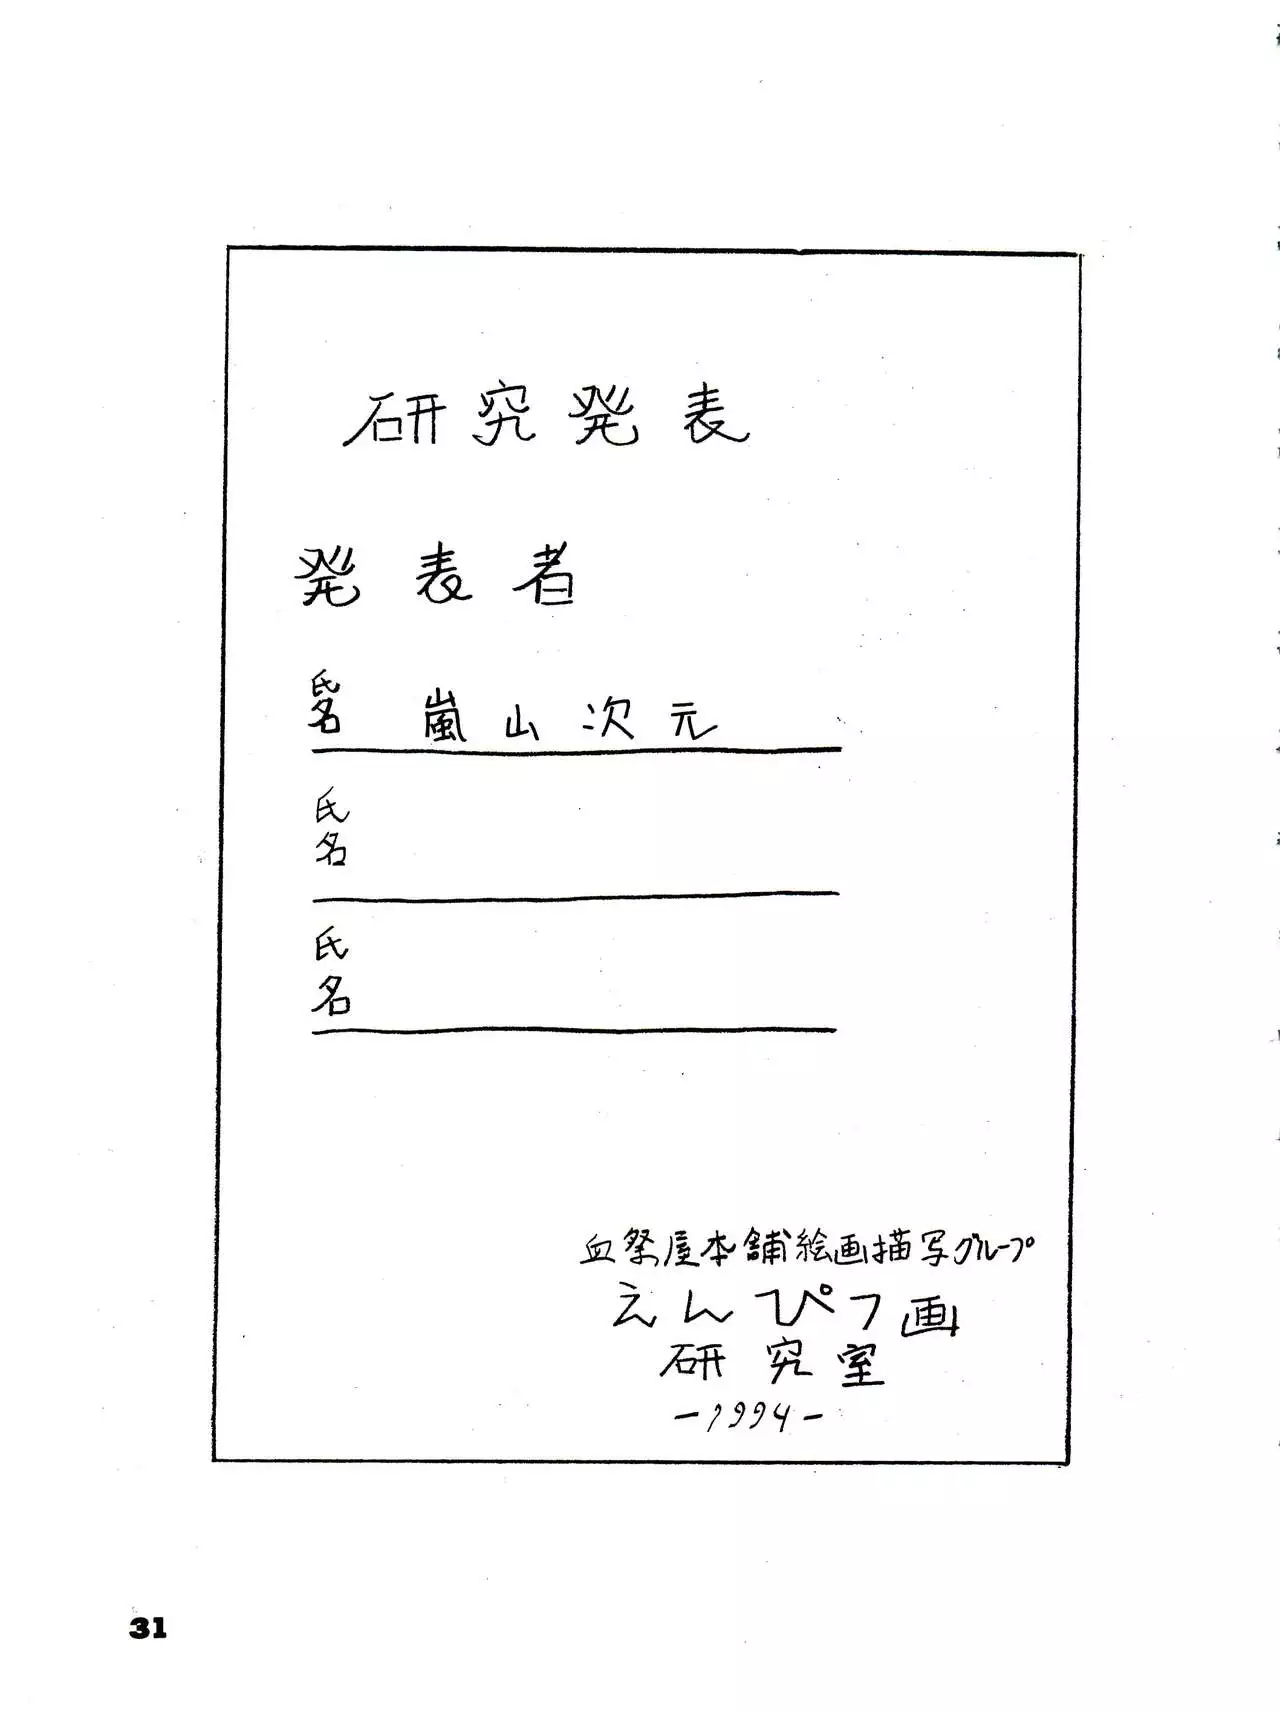 研究発表
発表者
氏名 嵐山次元
氏名
氏名
血祭屋本舗絵画描写グループ
えんぴつ画
研究室
-1994-
31